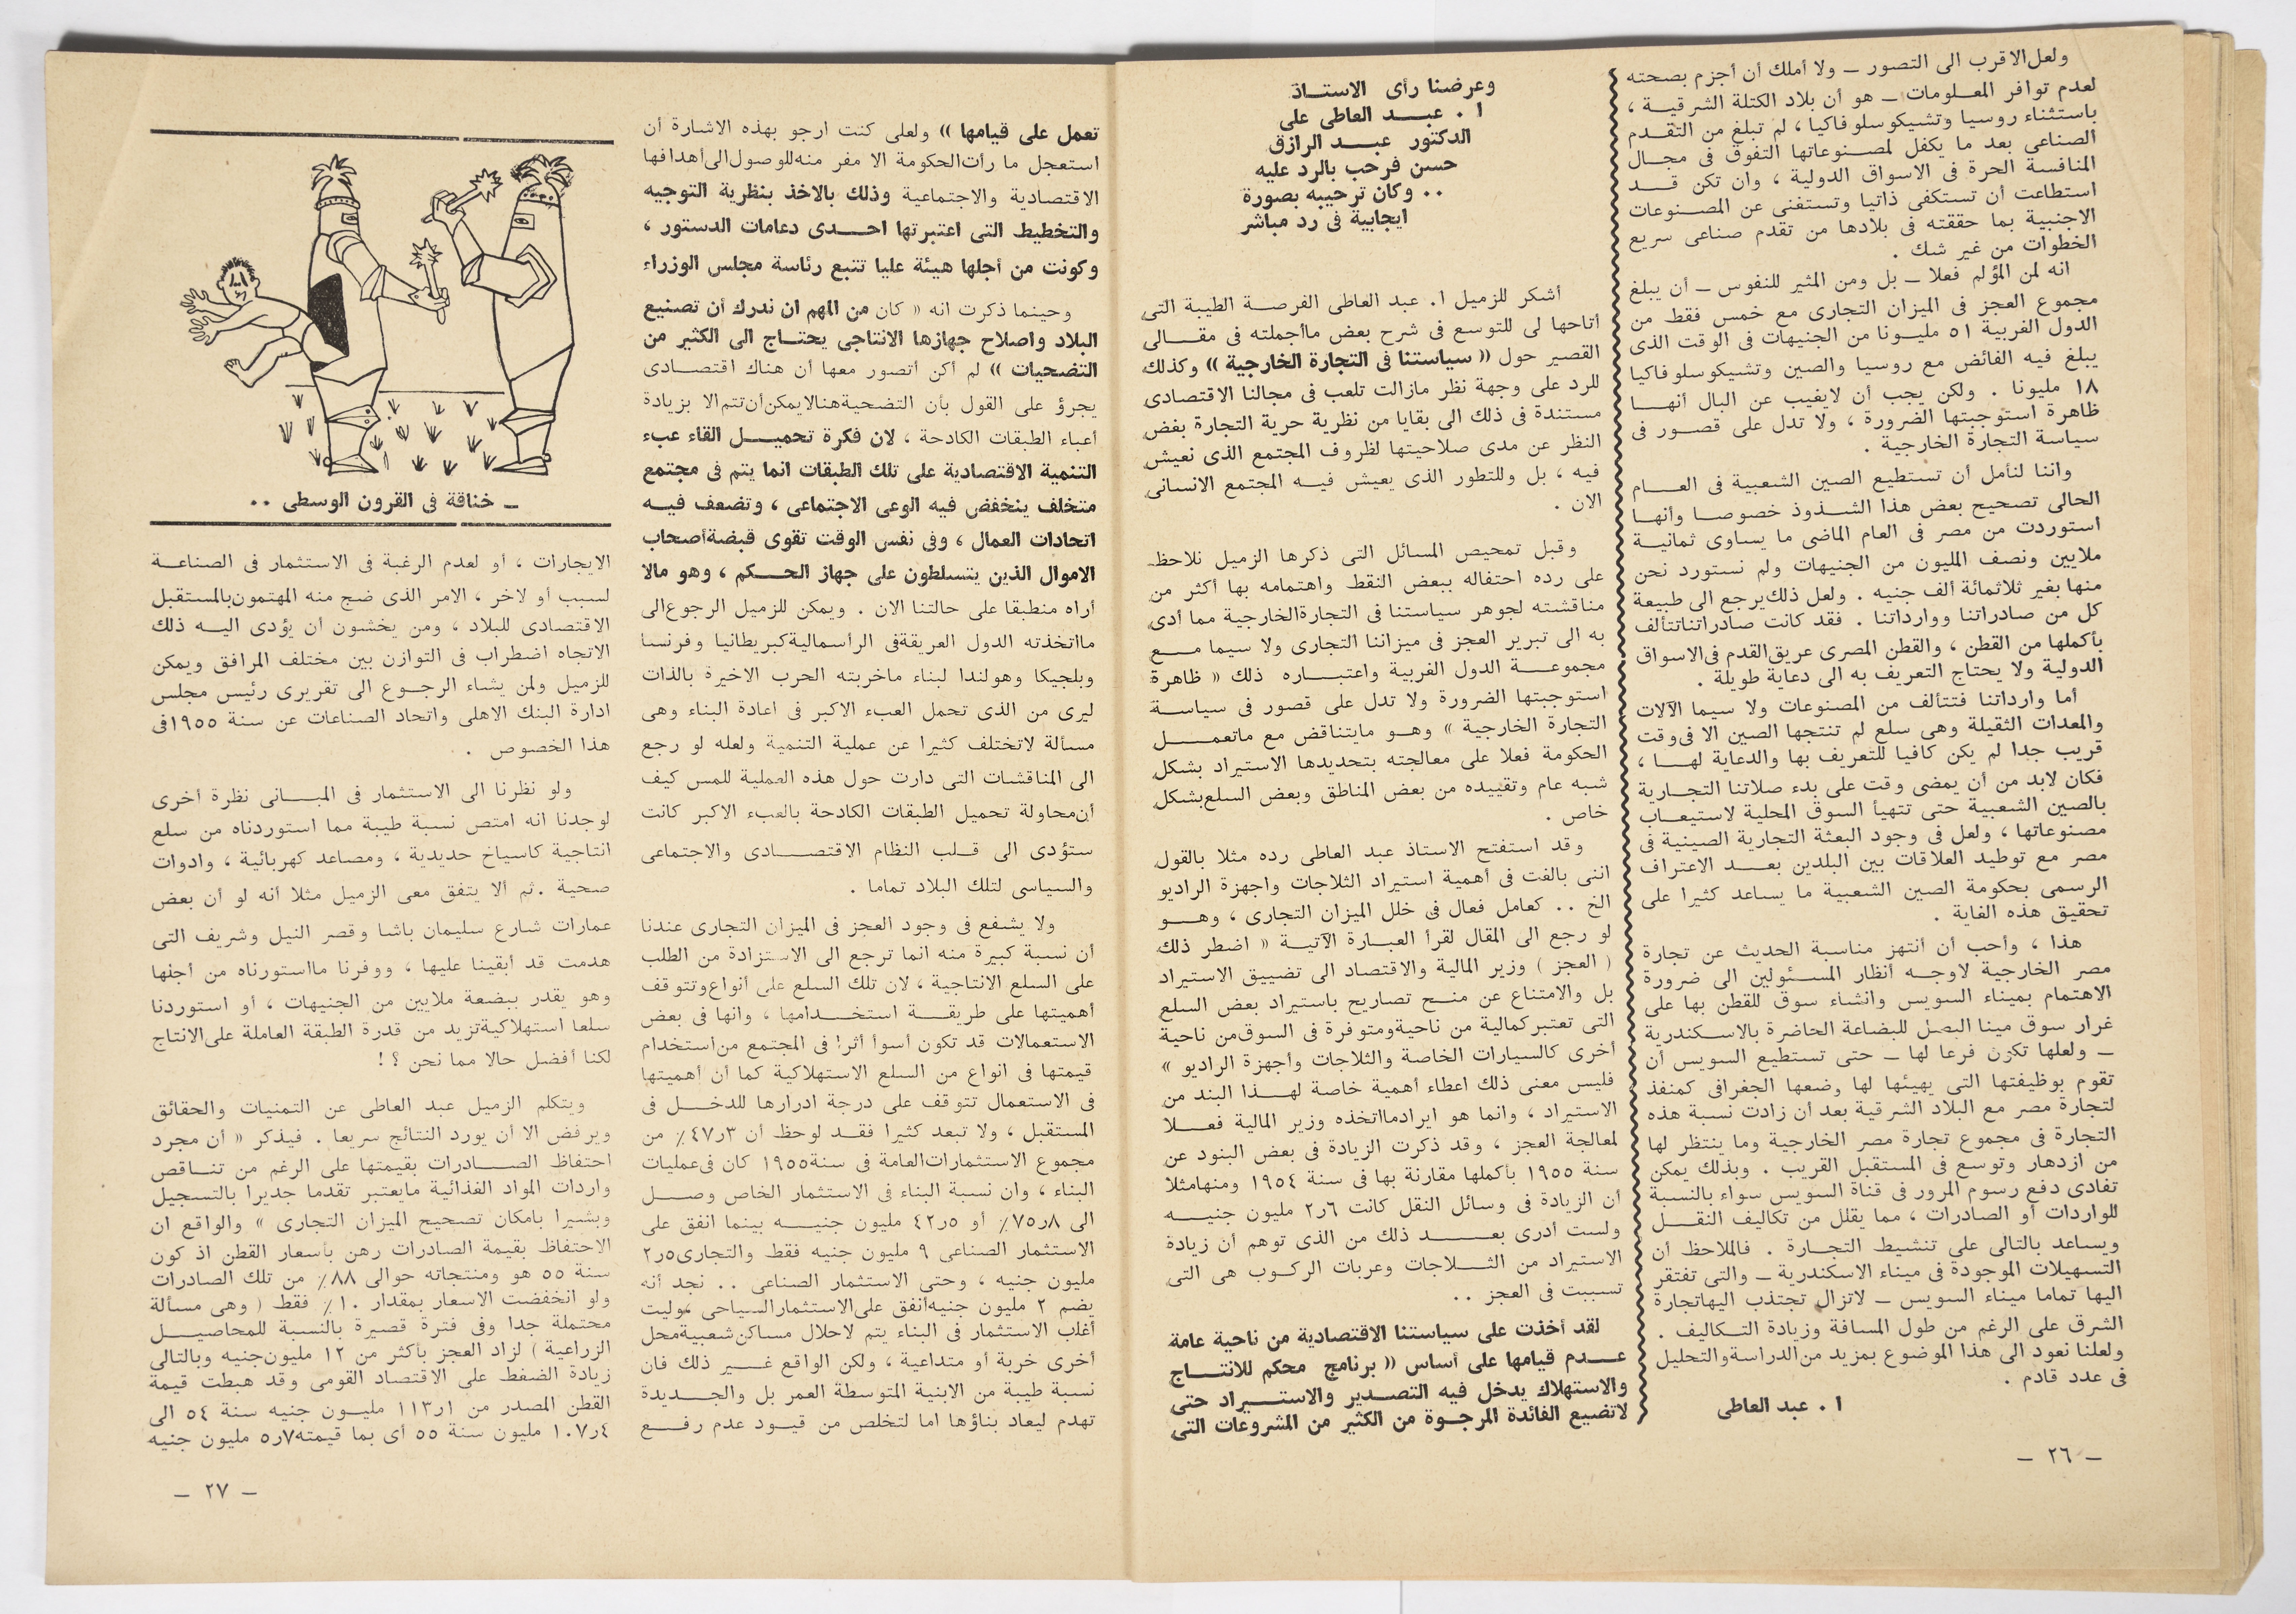 ولعل الاقرب الى التصور ــ ولا أملك أن أجزم بصحته
لعدم توافر المعلومات ــ هو أن بلاد الكتلة الشرقية ،
باستثناء روسيا وتشيكوسلوفاكيا ، لم تبلغ من التقدم
الصناعى بعد ما يكفل لمصنوعاتها التفوق فى مجال
المنافسة الحرة فى الاسواق الدولية ، وان تكن قد
استطاعت أن تستكفى ذاتيا وتستغنى عن المصنوعات
الاجنبية بما حققته فى بلادها من تقدم صناعى سريع
الخطوات من غير شك .
انه لمن المؤلم فعلا ــ بل ومن المثير للنفوس ــ أن يبلغ
مجموع العجز فى الميزان التجارى مع خمس فقط من
الدول الغربية ٥١ مليونا من الجنيهات فى الوقت الذى
يبلغ فيه الفائض مع روسيا والصين وتشيكوسلوفاكيا
١٨ مليونا . ولكن يجب أن لايغيب عن البال أنها
ظاهرة استوجبتها الضرورة ، ولا تدل على قصور فى
سياسة التجارة الخارجية .
واننا لنأمل أن تستطيع الصين الشعبية فى العام
الحالى تصحيح بعض هذا الشذوذ خصوصا وأنها
استوردت من مصر فى العام الماضى ما يساوى ثمانية
ملايين ونصف المليون من الجنيهات ولم نستورد نحن
منها بغير ثلاثمائة ألف جنيه . ولعل ذلك يرجع الى طبيعة
كل من صادراتنا ووارداتنا . فقد كانت صادراتنا تتألف
بأكملها من القطن ، والقطن المصرى عريق القدم فى الاسواق
الدولية ولا يحتاج التعريف به الى دعاية طويلة .
أما وارداتنا فتتألف من المصنوعات ولا سيما الآلات
والمعدات الثقيلة وهى سلع لم تنتجها الصين الا فى وقت
قريب جدا لم يكن كافيا للتعريف بها والدعاية لها ،
فكان لابد من أن يمضى وقت على بدء صلاتنا التجارية
بالصين الشعبية حتى تتهيأ السوق المحلية لاستيعاب
مصنوعاتها ، ولعل فى وجود البعثة التجارية الصينية فى
مصر مع توطيد العلاقات بين البلدين بعد الاعتراف
الرسمى بحكومة الصين الشعبية ما يساعد كثيرا على
تحقيق هذه الغاية .
هذا ، وأحب أن أنتهز مناسبة الحديث عن تجارة
مصر الخارجية لاوجه أنظار المسئولين الى ضرورة
الاهتمام بميناء السويس وانشاء سوق للقطن بها على
غرار سوق مينا البصل للبضاعة الحاضرة بالاسكندرية
ــ ولعلها تكون فرعا لها ــ حتى تستطيع السويس أن
تقوم بوظيفتها التى يهيئها لها وضعها الجغرافى كمنفذ
لتجارة مصر مع البلاد الشرقية بعد أن زادت نسبة هذه
التجارة فى مجموع تجارة مصر الخارجية وما ينتظر لها
من ازدهار وتوسع فى المستقبل القريب . وبذلك يمكن
تفادى دفع رسوم المرور فى قناة السويس سواء بالنسبة
للواردات أو الصادرات ، مما يقلل من تكاليف النقل
ويساعد بالتالى على تنشيط التجارة . فالملاحظ أن
التسهيلات الموجودة فى ميناء الاسكندرية ــ والتى تفتقر
اليها تماما ميناء السويس ــ لاتزال تجتذب اليها تجارة
الشرق على الرغم من طول المسافة وزيادة التكاليف .
ولعلنا نعود الى هذا الموضوع بمزيد من الدراسة والتحليل
فى عدد قادم .
ا . عبد العاطى
وعرضنا رأى الاستاذ
ا . عبد العاطى على
الدكتور عبد الرازق
حسن فرحب بالرد عليه
.. وكان ترحيبه بصورة
ايجابية فى رد مباشر
أشكر للزميل ا. عبد العاطى الفرصة الطيبة التى
أتاحها لى للتوسع فى شرح بعض ماأجملته فى مقالى
القصير حول « سياستنا فى التجارة الخارجية » وكذلك
للرد على وجهة نظر مازالت تلعب فى مجالنا الاقتصادى
مستندة فى ذلك الى بقايا من نظرية حرية التجارة بغض
النظر عن مدى صلاحيتها لظروف المجتمع الذى نعيش
فيه ، بل وللتطور الذى يعيش فيه المجتمع الانسانى
الان .
وقبل تمحيص المسائل التى ذكرها الزميل نلاحظ
على رده احتفاله ببعض النقط واهتمامه بها أكثر من
مناقشته لجوهر سياستنا فى التجارة الخارجية مما أدى
به الى تبرير العجز فى ميزاننا التجارى ولا سيما مع
مجموعة الدول الغربية واعتباره ذلك « ظاهرة
استوجبتها الضرورة ولا تدل على قصور فى سياسة
التجارة الخارجية » وهو مايتناقض مع ماتعمل
الحكومة فعلا على معالجته بتحديدها الاستيراد بشكل
شبه عام وتقييده من بعض المناطق وبعض السلع بشكل
خاص .
وقد استفتح الاستاذ عبد العاطى رده مثلا بالقول
اننى بالغت فى أهمية استيراد الثلاجات واجهزة الراديو
الخ .. كعامل فعال فى خلل الميزان التجارى ، وهو
لو رجع الى المقال لقرأ العبارة الآتية « اضطر ذلك
( العجز ) وزير المالية والاقتصاد الى تضييق الاستيراد
بل والامتناع عن منح تصاريح باستيراد بعض السلع
التى تعتبر كمالية من ناحية ومتوفرة فى السوق من ناحية
أخرى كالسيارات الخاصة والثلاجات وأجهزة الراديو »
فليس معنى ذلك اعطاء أهمية خاصة لهذا البند من
الاستيراد ، وانما هو ايراد مااتخذه وزير المالية فعلا
لمعالجة العجز ، وقد ذكرت الزيادة فى بعض البنود عن
سنة ١٩٥٥ بأكملها مقارنة بها فى سنة ١٩٥٤ ومنها مثلا
أن الزيادة فى وسائل النقل كانت ٢٫٦ مليون جنيه
ولست أدرى بعد ذلك من الذى توهم أن زيادة
الاستيراد من الثلاجات وعربات الركوب هى التى
تسببت فى العجز ..
لقد أخذت على سياستنا الاقتصادية من ناحية عامة
عدم قيامها على أساس « برنامج محكم للانتاج
والاستهلاك يدخل فيه التصدير والاستيراد حتى
لاتضيع الفائدة المرجوة من الكثير من المشروعات التى
ــ ٢٦ ــ
تعمل على قيامها » ولعلى كنت ارجو بهذه الاشارة أن
استعجل ما رأت الحكومة الا مفر منه للوصول الى أهدافها
الاقتصادية والاجتماعية وذلك بالاخذ بنظرية التوجيه
والتخطيط التى اعتبرتها احدى دعامات الدستور ،
وكونت من أجلها هيئة عليا تتبع رئاسة مجلس الوزراء
وحينما ذكرت انه « كان من المهم ان ندرك أن تصنيع
البلاد واصلاح جهازها الانتاجى يحتاج الى الكثير من
التضحيات » لم أكن أتصور معها أن هناك اقتصادى
يجرؤ على القول بأن التضحية هنا لايمكن أن تتم الا بزيادة
أعباء الطبقات الكادحة ، لان فكرة تحميل القاء عبء
التنمية الاقتصادية على تلك الطبقات انما يتم فى مجتمع
متخلف ينخفض فيه الوعى الاجتماعى ، وتضعف فيه
اتحادات العمال ، وفى نفس الوقت تقوى قبضة أصحاب
الاموال الذين يتسلطون على جهاز الحكم ، وهو مالا
أراه منطبقا على حالتنا الان . ويمكن للزميل الرجوع الى
مااتخذته الدول العريقة فى الرأسمالية كبريطانيا وفرنسا
وبلجيكا وهولندا لبناء ماخربته الحرب الاخيرة بالذات
ليرى من الذى تحمل العبء الاكبر فى اعادة البناء وهى
مسألة لاتختلف كثيرا عن عملية التنمية ولعله لو رجع
الى المناقشات التى دارت حول هذه العملية للمس كيف
أن محاولة تحميل الطبقات الكادحة بالعبء الاكبر كانت
ستؤدى الى قلب النظام الاقتصادى والاجتماعى
والسياسى لتلك البلاد تماما .
ولا يشفع فى وجود العجز فى الميزان التجارى عندنا
أن نسبة كبيرة منه انما ترجع الى الاستزادة من الطلب
على السلع الانتاجية ، لان تلك السلع على أنواع وتتوقف
أهميتها على طريقة استخدامها ، وانها فى بعض
الاستعمالات قد تكون أسوأ أثرا فى المجتمع من استخدام
قيمتها فى انواع من السلع الاستهلاكية كما أن أهميتها
فى الاستعمال تتوقف على درجة ادرارها للدخل فى
المستقبل ، ولا تبعد كثيرا فقد لوحظ أن ٤٧٫٣٪ من
مجموع الاستثمارات العامة فى سنة ١٩٥٥ كان فى عمليات
البناء ، وان نسبة البناء فى الاستثمار الخاص وصل
الى ٧٥٫٨٪ أو ٤٢٫٥ مليون جنيه بينما انفق على
الاستثمار الصناعى ٩ مليون جنيه فقط والتجارى ٢٫٥
مليون جنيه ، وحتى الاستثمار الصناعى .. نجد أنه
يضم ٢ مليون جنيه أنفق على الاستثمار السياحى وليت
أغلب الاستثمار فى البناء يتم لاحلال مساكن شعبية محل
أخرى خربة أو متداعية ، ولكن الواقع غير ذلك فان
نسبة طيبة من الابنية المتوسطة العمر بل والجديدة
تهدم ليعاد بناؤها اما لتخلص من قيود عدم رفع
ــ خناقة فى القرون الوسطى ..
الايجارات ، أو لعدم الرغبة فى الاستثمار فى الصناعة
لسبب أو لاخر ، الامر الذى ضج منه المهتمون بالمستقبل
الاقتصادى للبلاد ، ومن يخشون ان يؤدى اليه ذلك
الاتجاه اضطراب فى التوازن بين مختلف المرافق ويمكن
للزميل ولمن يشاء الرجوع الى تقريرى رئيس مجلس
ادارة البنك الاهلى واتحاد الصناعات عن سنة ١٩٥٥ فى
هذا الخصوص .
ولو نظرنا الى الاستثمار فى المبانى نظرة أخرى
لوجدنا انه امتص نسبة طيبة مما استوردناه من سلع
انتاجية كاسياخ حديدية ، ومصاعد كهربائية ، وادوات
صحية . ثم ألا يتفق معى الزميل مثلا أنه لو أن بعض
عمارات شارع سليمان باشا وقصر النيل وشريف التى
هدمت قد أبقينا عليها ، ووفرنا مااستورناه من أجلها
وهو يقدر ببضعة ملايين من الجنيهات ، أو استوردنا
سلعا استهلاكية تزيد من قدرة الطبقة العاملة على الانتاج
لكنا أفضل حالا مما نحن ؟ !
ويتكلم الزميل عبد العاطى عن التمنيات والحقائق
ويرفض الا أن يورد النتائج سريعا . فيذكر « أن مجرد
احتفاظ الصادرات بقيمتها على الرغم من تناقص
واردات المواد الغذائية مايعتبر تقدما جديرا بالتسجيل
وبشيرا بامكان تصحيح الميزان التجارى » والواقع ان
الاحتفاظ بقيمة الصادرات رهن بأسعار القطن اذ كون
سنة ٥٥ هو ومنتجاته حوالى ٨٨٪ من تلك الصادرات
ولو انخفضت الاسعار بمقدار ١٠٪ فقط ( وهى مسألة
محتملة جدا وفى فترة قصيرة بالنسبة للمحاصيل
الزراعية ) لزاد العجز بأكثر من ١٢ مليون جنيه وبالتالى
زيادة الضغط على الاقتصاد القومى وقد هبطت قيمة
القطن المصدر من ١١٣٫١ مليون جنيه سنة ٥٤ الى
١٠٧٫٤ مليون سنة ٥٥ أى بما قيمته ٥٫٧ مليون جنيه
ــ ٢٧ ــ